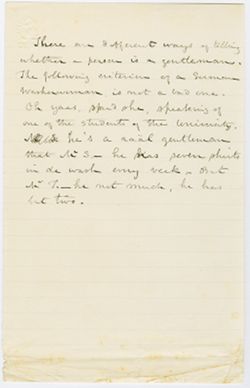 There are different ways of telling
whether a person is a gentleman.
The following criterion of a German
Washerwoman is not a bad one.
Oh yaas, said she, speaking of
one of the students of the University
he's a raal gentleman
that Mr S— he has seven shirts
in de wash every week. But
Mr T.— he not much, he has
but two.